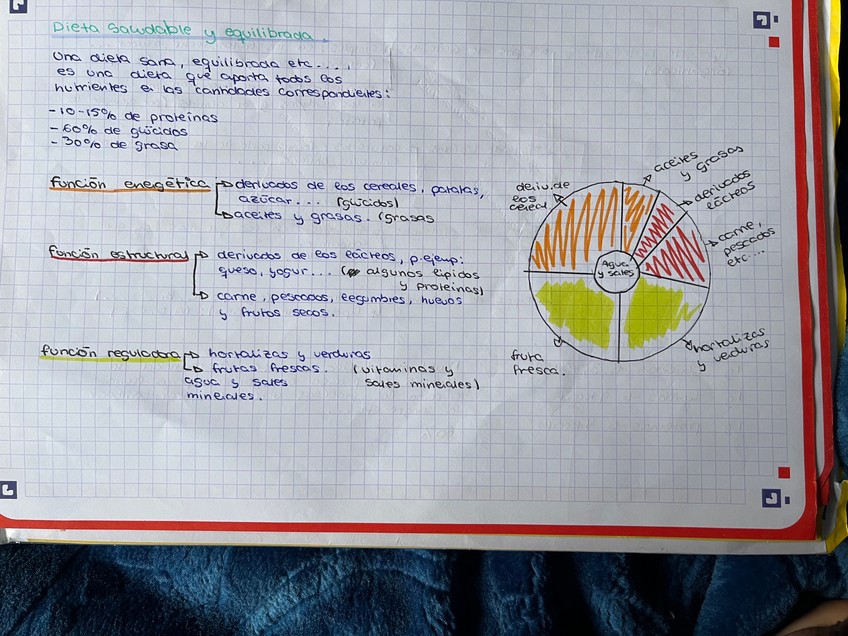 Dieta saludable y equilibrada.
Una dieta sana, equilibrada etc....
es una dieta que aporta todos los
nutrientes en las cantidades correspondientes:
-10-15% de proteínas
-60% de glúcidos
-30% de grasa
función enegética
derivados de los cereales, patatas,
azúcar... (glúcidos)
aceites y grasas. (grasas
función estructural
derivados de los lácteos, p.ejemp:
queso, yogur... ( algunos lípidos
y proteínas)
carne, pescados, legumbres, huevos
y frutos secos.
función reguladora
hortalizas y verduras
frutas frescas. (vitaminas y
sales minerales)
agua y sales
minerales.
deriv.de
los
cereal
aceites
y grasas
derivados
lácteos
carne,
pescados
etc....
Agua
y sales
fruta
fresca.
hortalizas
y verduras